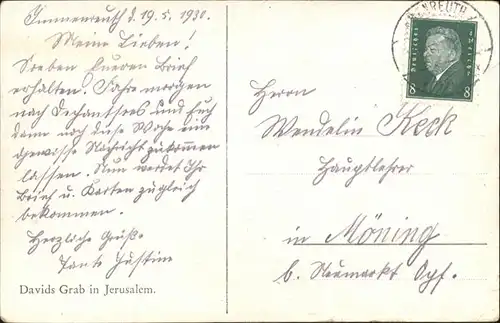 Immenreuth d. 19.5.1930.
Meine Lieben!
Soeben Eueren Brief
erhalten. Fahre morgen
nach und Euch
dann noch diese Woche eine
gewisse Nachricht zukommen
lassen. Nun werdet Ihr
Brief u. Karten zugleich
bekommen.
Herzliche Grüße
Tante Justine
Davids Grab in Jerusalem.
ENREUTH
Deutsches Reich
8 8
Herrn
Wendelin Keck
Hauptlehrer
in Möning
b. Neumarkt Opf.